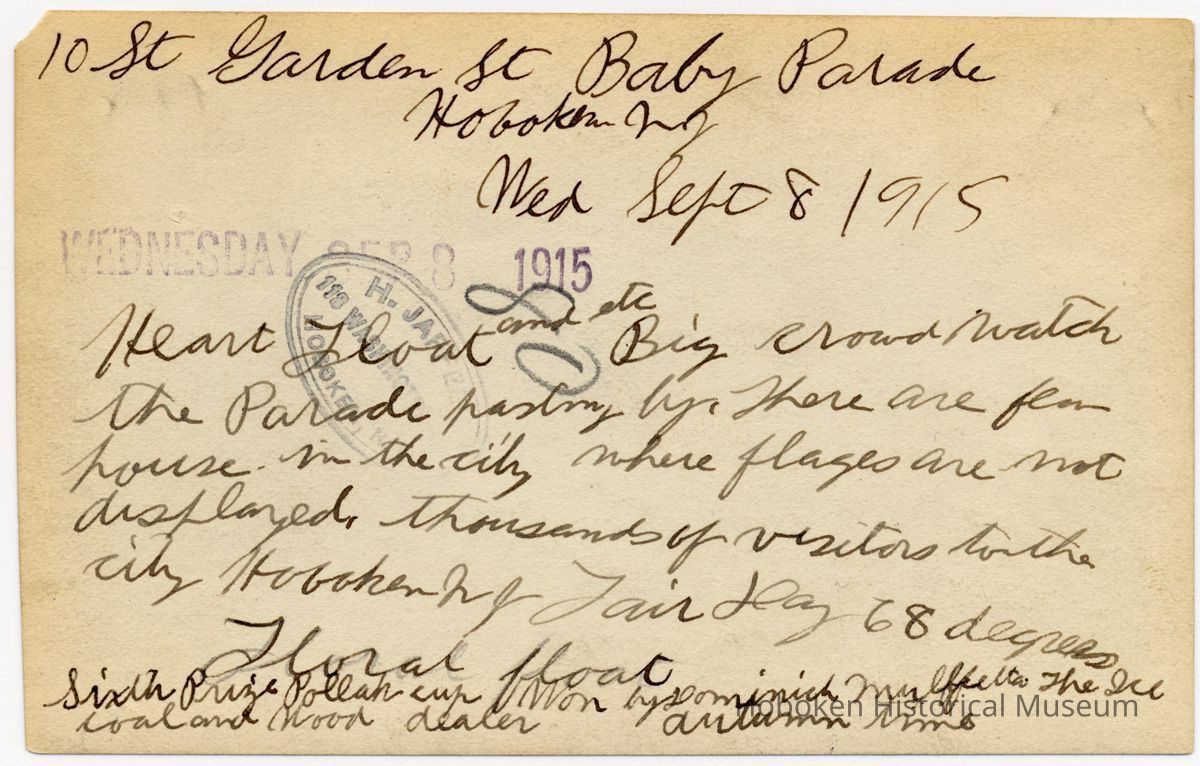 10 St Garden St Baby Parade
Hoboken NJ
Wed Sept 8 1915
WEDNESDAY SEP 8 1915
H. JA
118 WASHING
HOBOKEN
and etc
Heart Float Big crowd watch
the Parade pasing by. There are few
house in the city where flages are not
displayed. thousands of visitors to the
city Hoboken NJ Fair Day 68 degrees
Floral float
Sixth Prize Pollak cup Won by Dominick The Ice
coal and Wood dealer autumn time
Hoboken Historical Museum